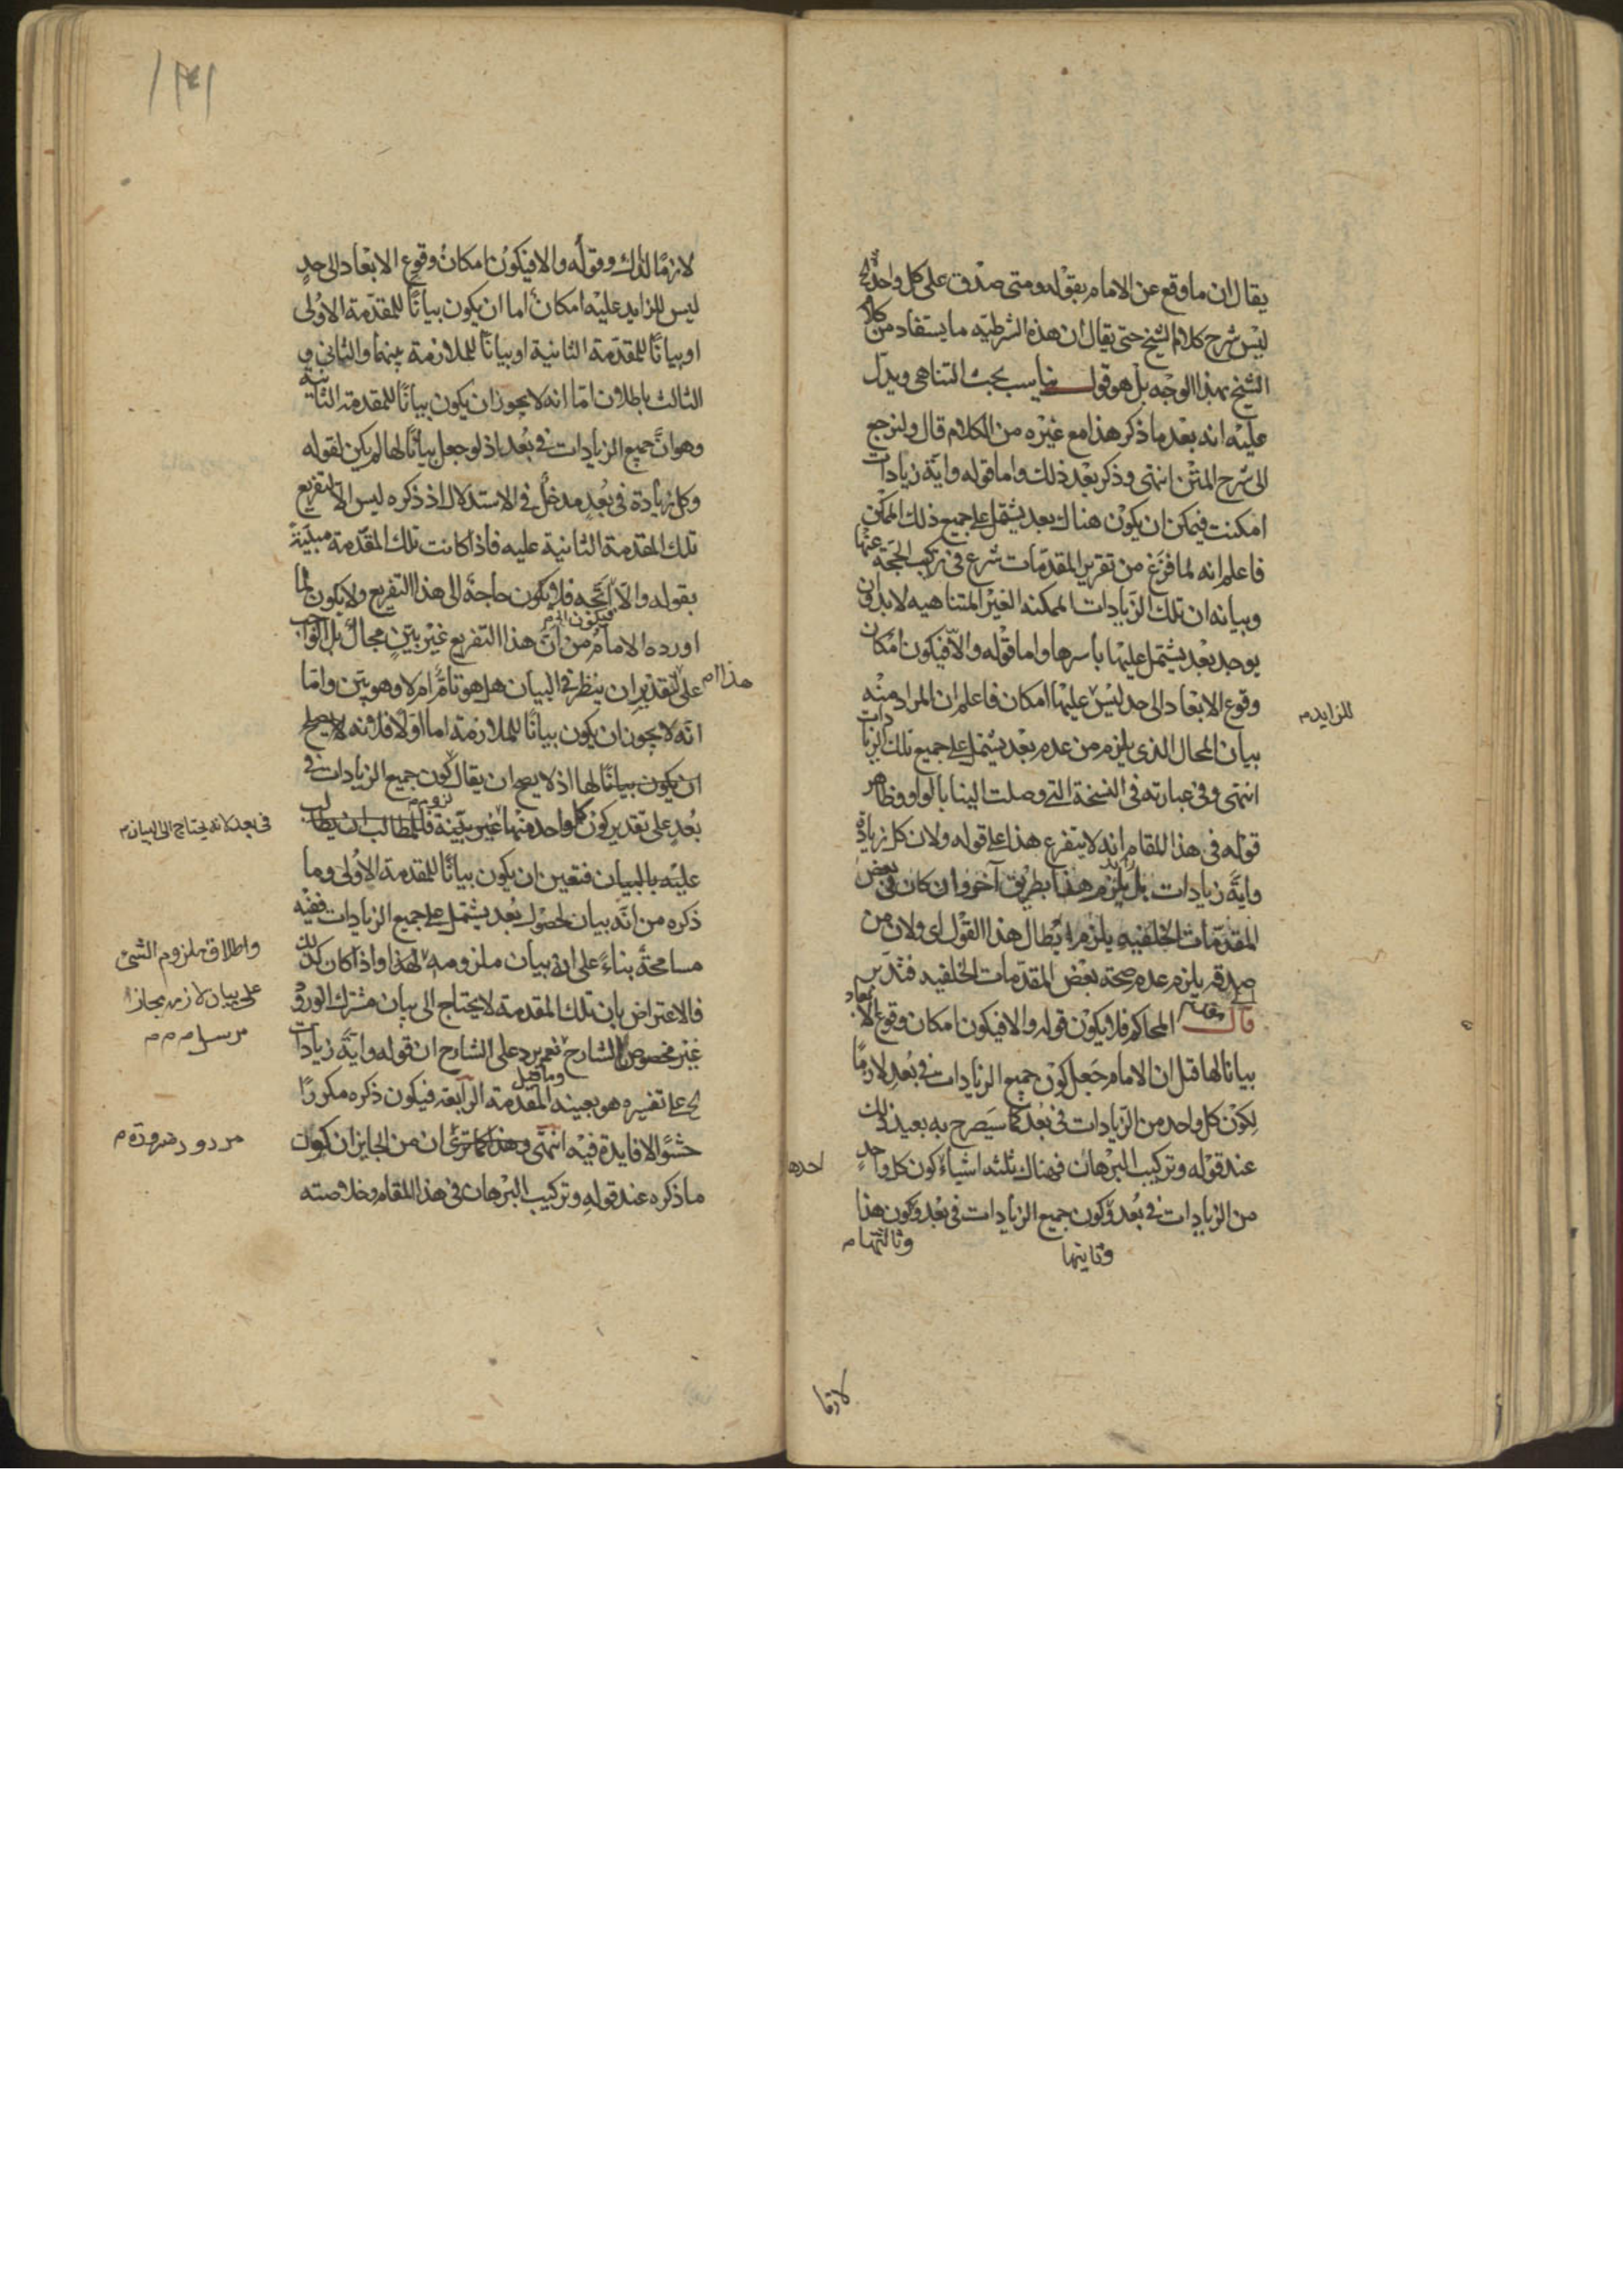 يقال ان ما وقع عن الامام بقوله ومتى صدق على كل واحد الخ
ليس شرح كلام الشيخ حتى يقال ان هذه الشرطيه ما يستفاد من كلام
الشيخ بهذا الوجه بل هو قول يناسب بحث التناهى ويدل
عليه انه بعد ما ذكر هذا مع غيره من الكلام قال ولنرجع
الى شرح المتن انتهى وذكر بعد ذلك واما قوله واية زيادات
امكنت فيمكن ان يكون هناك بعد يشتمل على جميع ذلك الممكن
فاعلم انه لما فرغ من تقرير المقدمات شرع فى تركيب الحجة عنها
وبيانه ان تلك الزيادات الممكنه الغير المتناهيه لابد وان
يوجد بعد يشتمل عليها بأسرها واما قوله والا فيكون امكان
وقوع الابعاد الى حد ليس عليها امكان فاعلم ان المراد منه
للزايد م
بيان المحال الذى يلزم من عدم بعد يشتمل على جميع تلك الزيادات
انتهى وفى عبارته فى النسخة التى وصلت الينا بالواو وظاهر
قوله فى هذا المقام انه لا يتفرع هذا على قوله ولان كل زيادة
واية زيادات بل يلزم هذا بطريق آخر وان كان فى بعض
المقدمات الخلفيه يلزم ابطال هذا القول اى ولان من
صدقه يلزم عدم صحة بعض المقدمات الخلفيه فتدبر
قال المحاكم فلا يكون قوله والا فيكون امكان وقوع الابعاد
بيانا لها قيل ان الامام جعل كون جميع الزيادات فى بعد لازما
لكون كل واحد من الزيادات فى بعد كما سيصرح به بعيد ذلك
عند قوله وتركيب البرهان فهناك ثلثه اشياء كون كل واحد
احدها
من الزيادات فى بعد وكون جميع الزيادات فى بعد وكون هذا
وثانيها
وثالثها م
لازما
لازما لذلك وقوله والا فيكون امكان وقوع الابعاد الى حد
ليس للزايد عليه امكان اما ان يكون بيانا للمقدمة الاولى
او بيانا للمقدمة الثانية او بيانا للملازمة بينهما والثانى و
الثالث باطلان اما انه لا يجوز ان يكون بيانا للمقدمة الثانية
وهو ان جميع الزيادات فى بعد اذ لو جعل بيانا لها لم يكن لقوله
وكل زيادة فى بعد مدخل فى الاستدلال اذ ذكره ليس الا لتفريع
تلك المقدمة الثانية عليه فاذا كانت تلك المقدمة مبينة
بقوله والا الخ فلا يكون حاجة الى هذا التفريع ولا يكون لما
فيكون الخ م
اورده الامام من ان هذا التفريع غير بين مجال بل الواجب
على التقدير ان ينظر فى البيان هل هو تام ام لا وهو بين واما
هذا م
انه لا يجوز ان يكون بيانا للملازمة اما اولا فلانه لا يصلح
ان يكون بيانا لها اذ لا يصح ان يقال كون جميع الزيادات فى
بعد على تقدير كون كل واحد منها غير بينة فللمطالب ان يطالب
فى بعد لانه يحتاج الى البيان م
لزوم م
عليه بالبيان فتعين ان يكون بيانا للمقدمة الاولى وما
ذكره من انه بيان لحصول بعد يشتمل على جميع الزيادات ففيه
مسامحة بناء على انه بيان ملزومه لهذا واذا كان كذلك
واطلاق ملزوم الشئ
على بيان لازمه مجاز
مرسل م م م
فالاعتراض بان تلك المقدمة لا يحتاج الى بيان مشترك الورود
غير مخصوص بالشارح نعم يرد على الشارح ان قوله واية زيادات
وما قيل
الخ على تفسيره هو بعينه المقدمة الرابعة فيكون ذكره مكررا
حشوا لا فايدة فيه انتهى وهذا كما ترى ان من الجايز ان يكون
مردود ضرورة م
ما ذكره عند قوله وتركيب البرهان فى هذا المقام وخلاصته